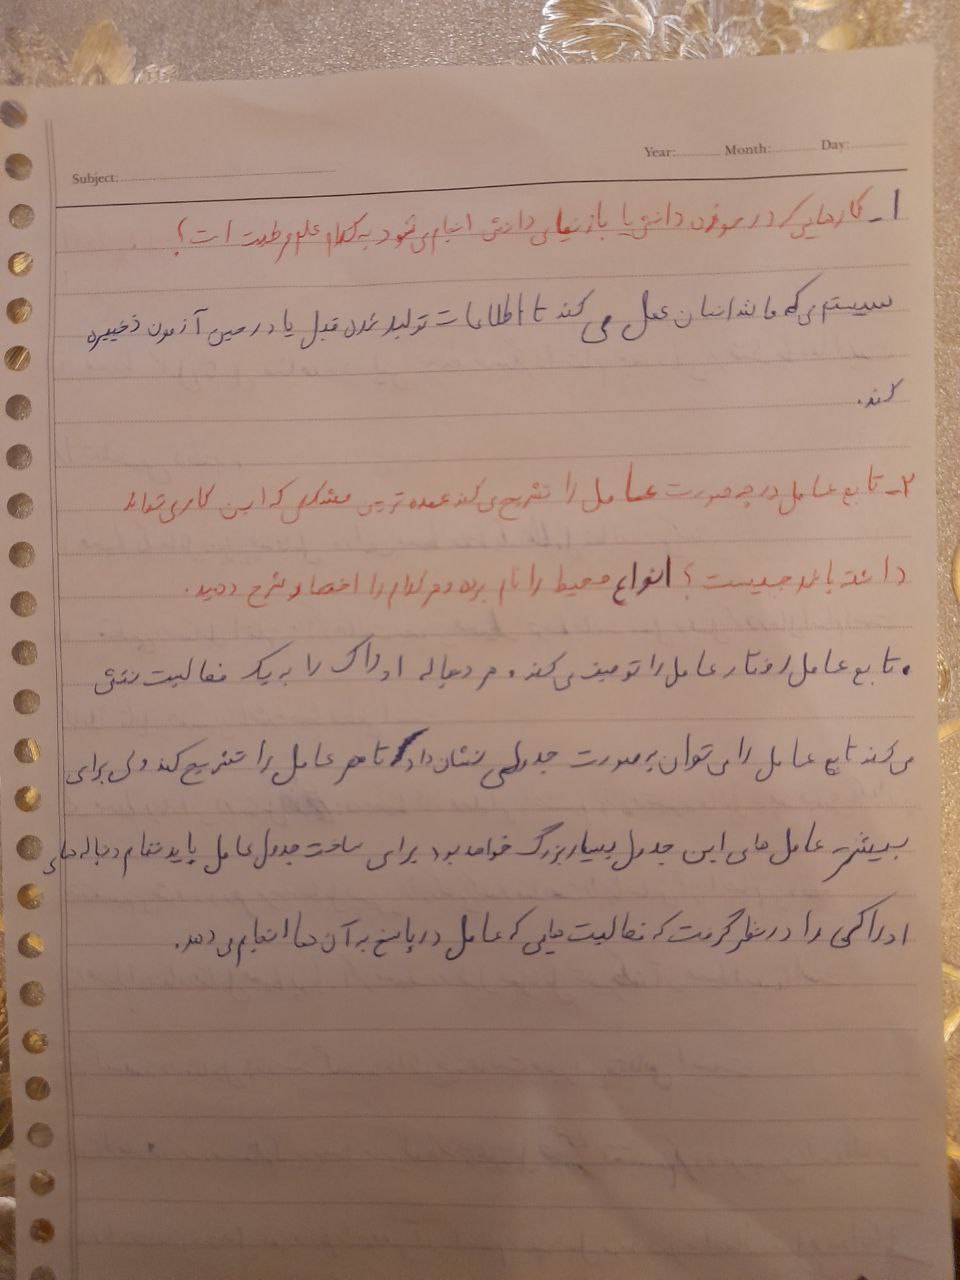 Year: Month: Day:
Subject:
۱ـ کارهایی که در مورد دانش یا بازنمایی دانش انجام می شود به کدام علم است؟
سیستمی که مانند انسان عمل می کند تا اطلاعات تولید شده قبل یا در حین آزمون ذخییره
کند.
۲ـ تابع عامل در چه صورت عامل را تشریح می کند عمده ترین مشکلی که این کار می تواند
داشته باشد چیست؟ انواع محیط را نام برده و هر کدام را اختصار شرح دهید.
• تابع عامل رفتار عامل را توصیف می کند و هر دنباله ادراک را به یک فعالیت نقش
می کند تابع عامل را می توان بصورت جدولی نشان داد تا هر عامل را تشریح کند ولی برای
بیشتر عامل های این جدول بسیار بزرگ خواهد بود برای ساخت جدول عامل باید تمام دنباله های
ادراکی را در نظر گرفت که فعالیت هایی که عامل در پاسخ به آن ها انجام می دهد.